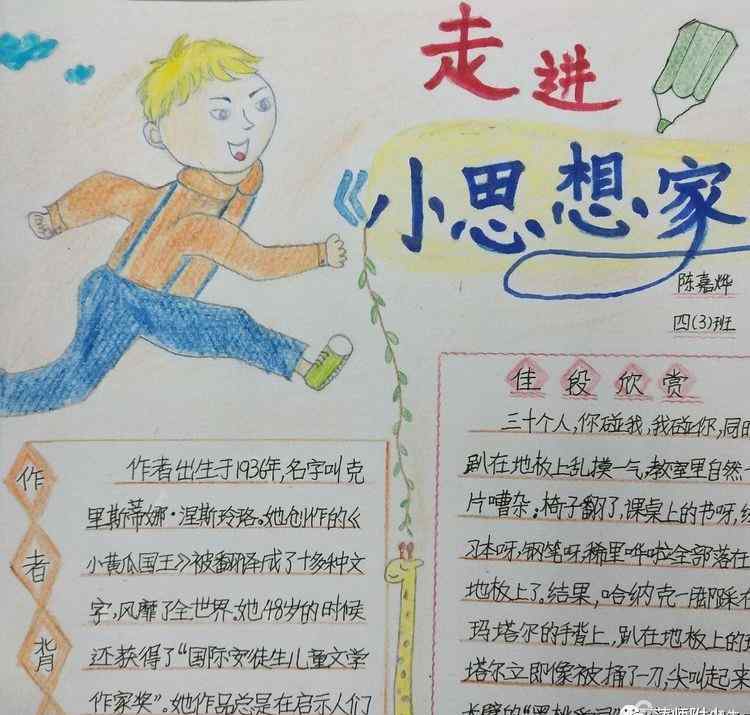 走进
《小思想家
陈嘉烨
四(3)班
佳段欣赏
三十个人,你碰我,我碰你,同时
趴在地板上乱摸一气,教室里自然一
片嘈杂;椅子翻了,课桌上的书呀,
习本呀,钢笔呀,稀里哗啦全部落在
地板上了。结果,哈纳克一脚踩在
玛塔尔的手背上,趴在地板上的玛
塔尔立即像被捅了一刀,尖叫起来
作者背
作者出生于1936年,名字叫克
里斯蒂娜·涅斯玲珞。她创作的《
小黄瓜国王》被翻译成了十多种文
字,风靡了全世界。她48岁的时候
还获得了“国际安徒生儿童文学
作家奖”。她作品总是在启示人们